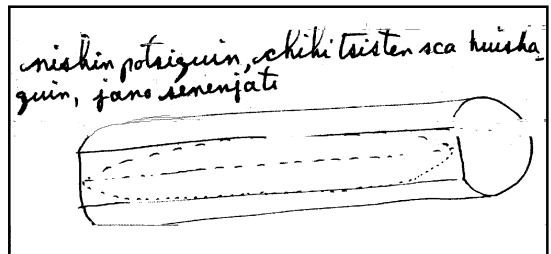 nishin potsiquin, chihi tsisten sca huisha_
quin, jano senenjati